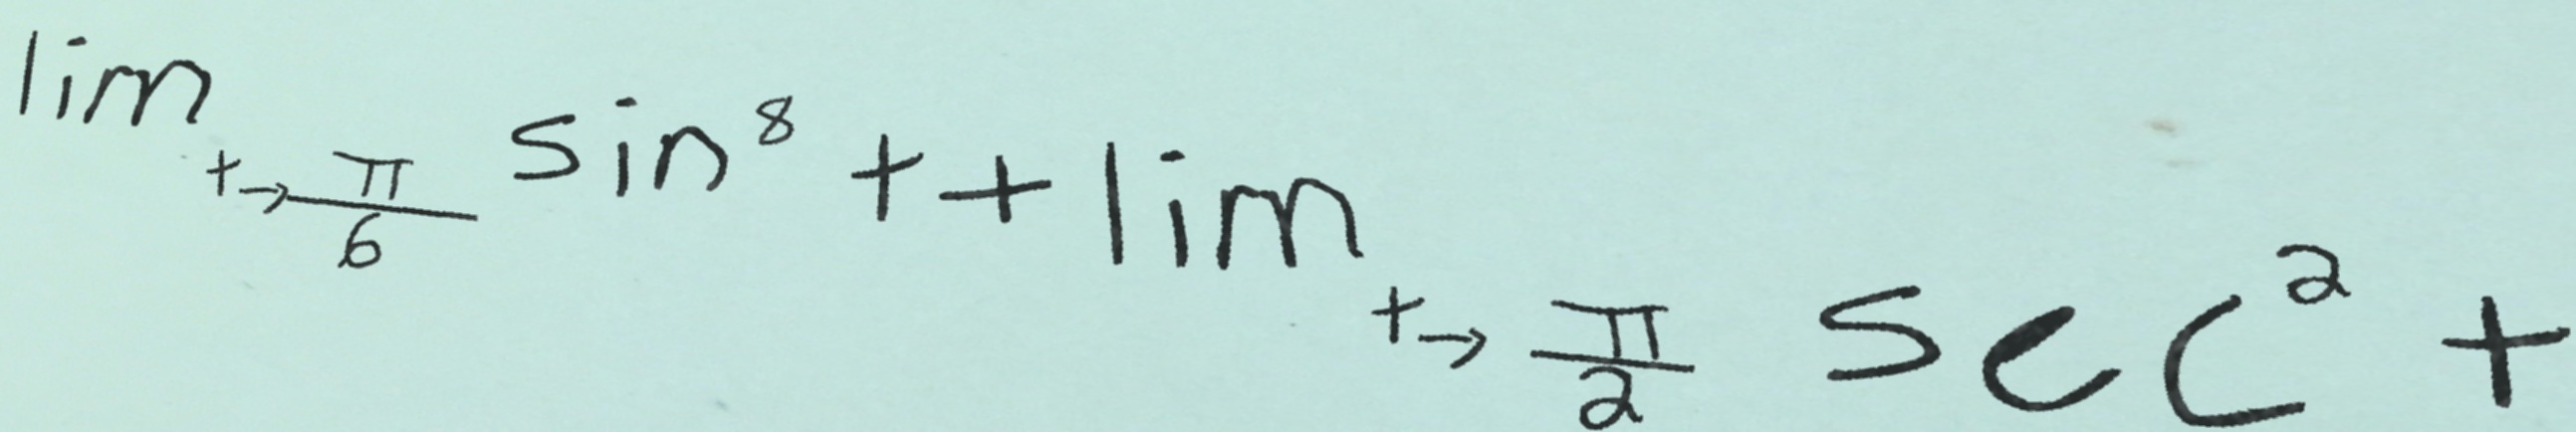 lim t→π/6 sin⁸ t + lim t→π/2 sec² t